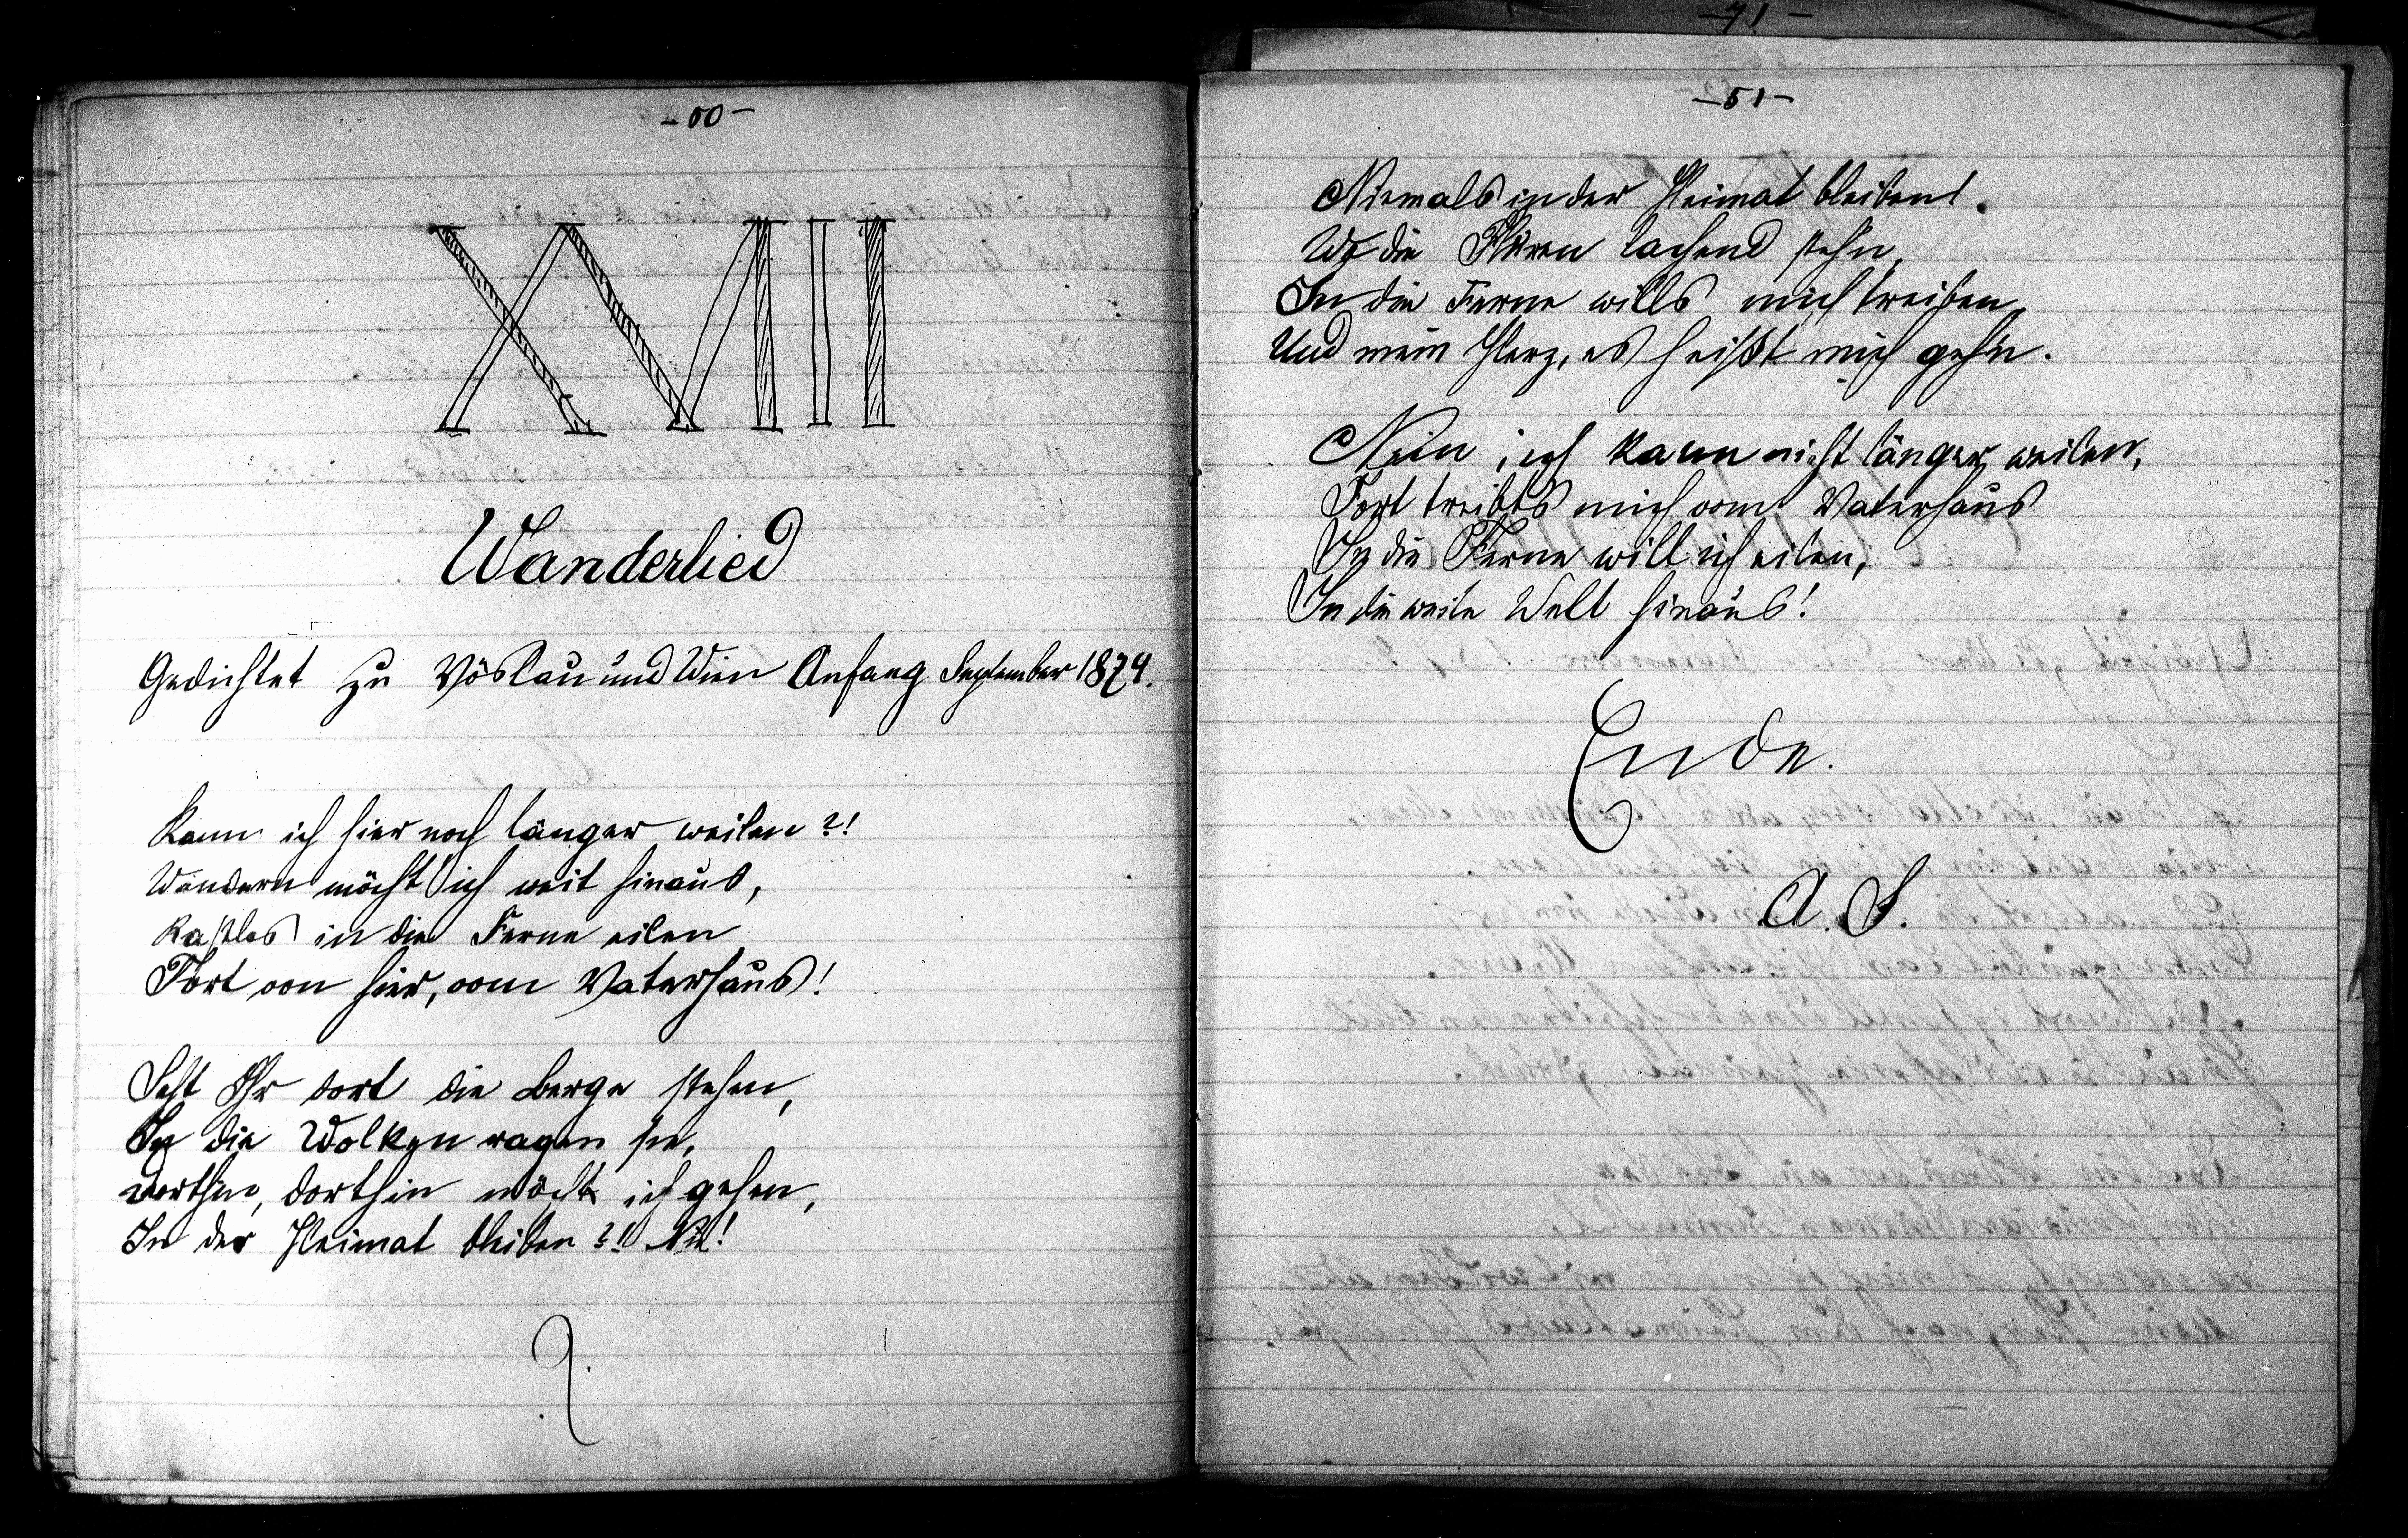 - 50 -
XVIII
Wanderlied
Gedichtet zu Vöslau und Wien Anfang September 1874.
Kann ich hier noch länger weilen?!
Wandern möcht ich weit hinaus,
Rastlos in die Ferne eilen
Fort von hier, vom Vaterhaus!
Seht Ihr dort die Berge stehen,
In die Wolken ragen sie,
Dorthin, dorthin möcht ich gehen,
In der Heimat bleiben?!! Nie!
- 71 -
- 51 -
Niemals in der Heimat bleiben!
Wo die Fluren lachend stehn,
In die Ferne wills mich treiben,
Und mein Herz, es heißt mich gehn.
Nein, ich kann nicht länger weilen,
Fort treibts mich vom Vaterhaus
In die Ferne will ich eilen,
In die weite Welt hinaus!
Ende.
A. S.